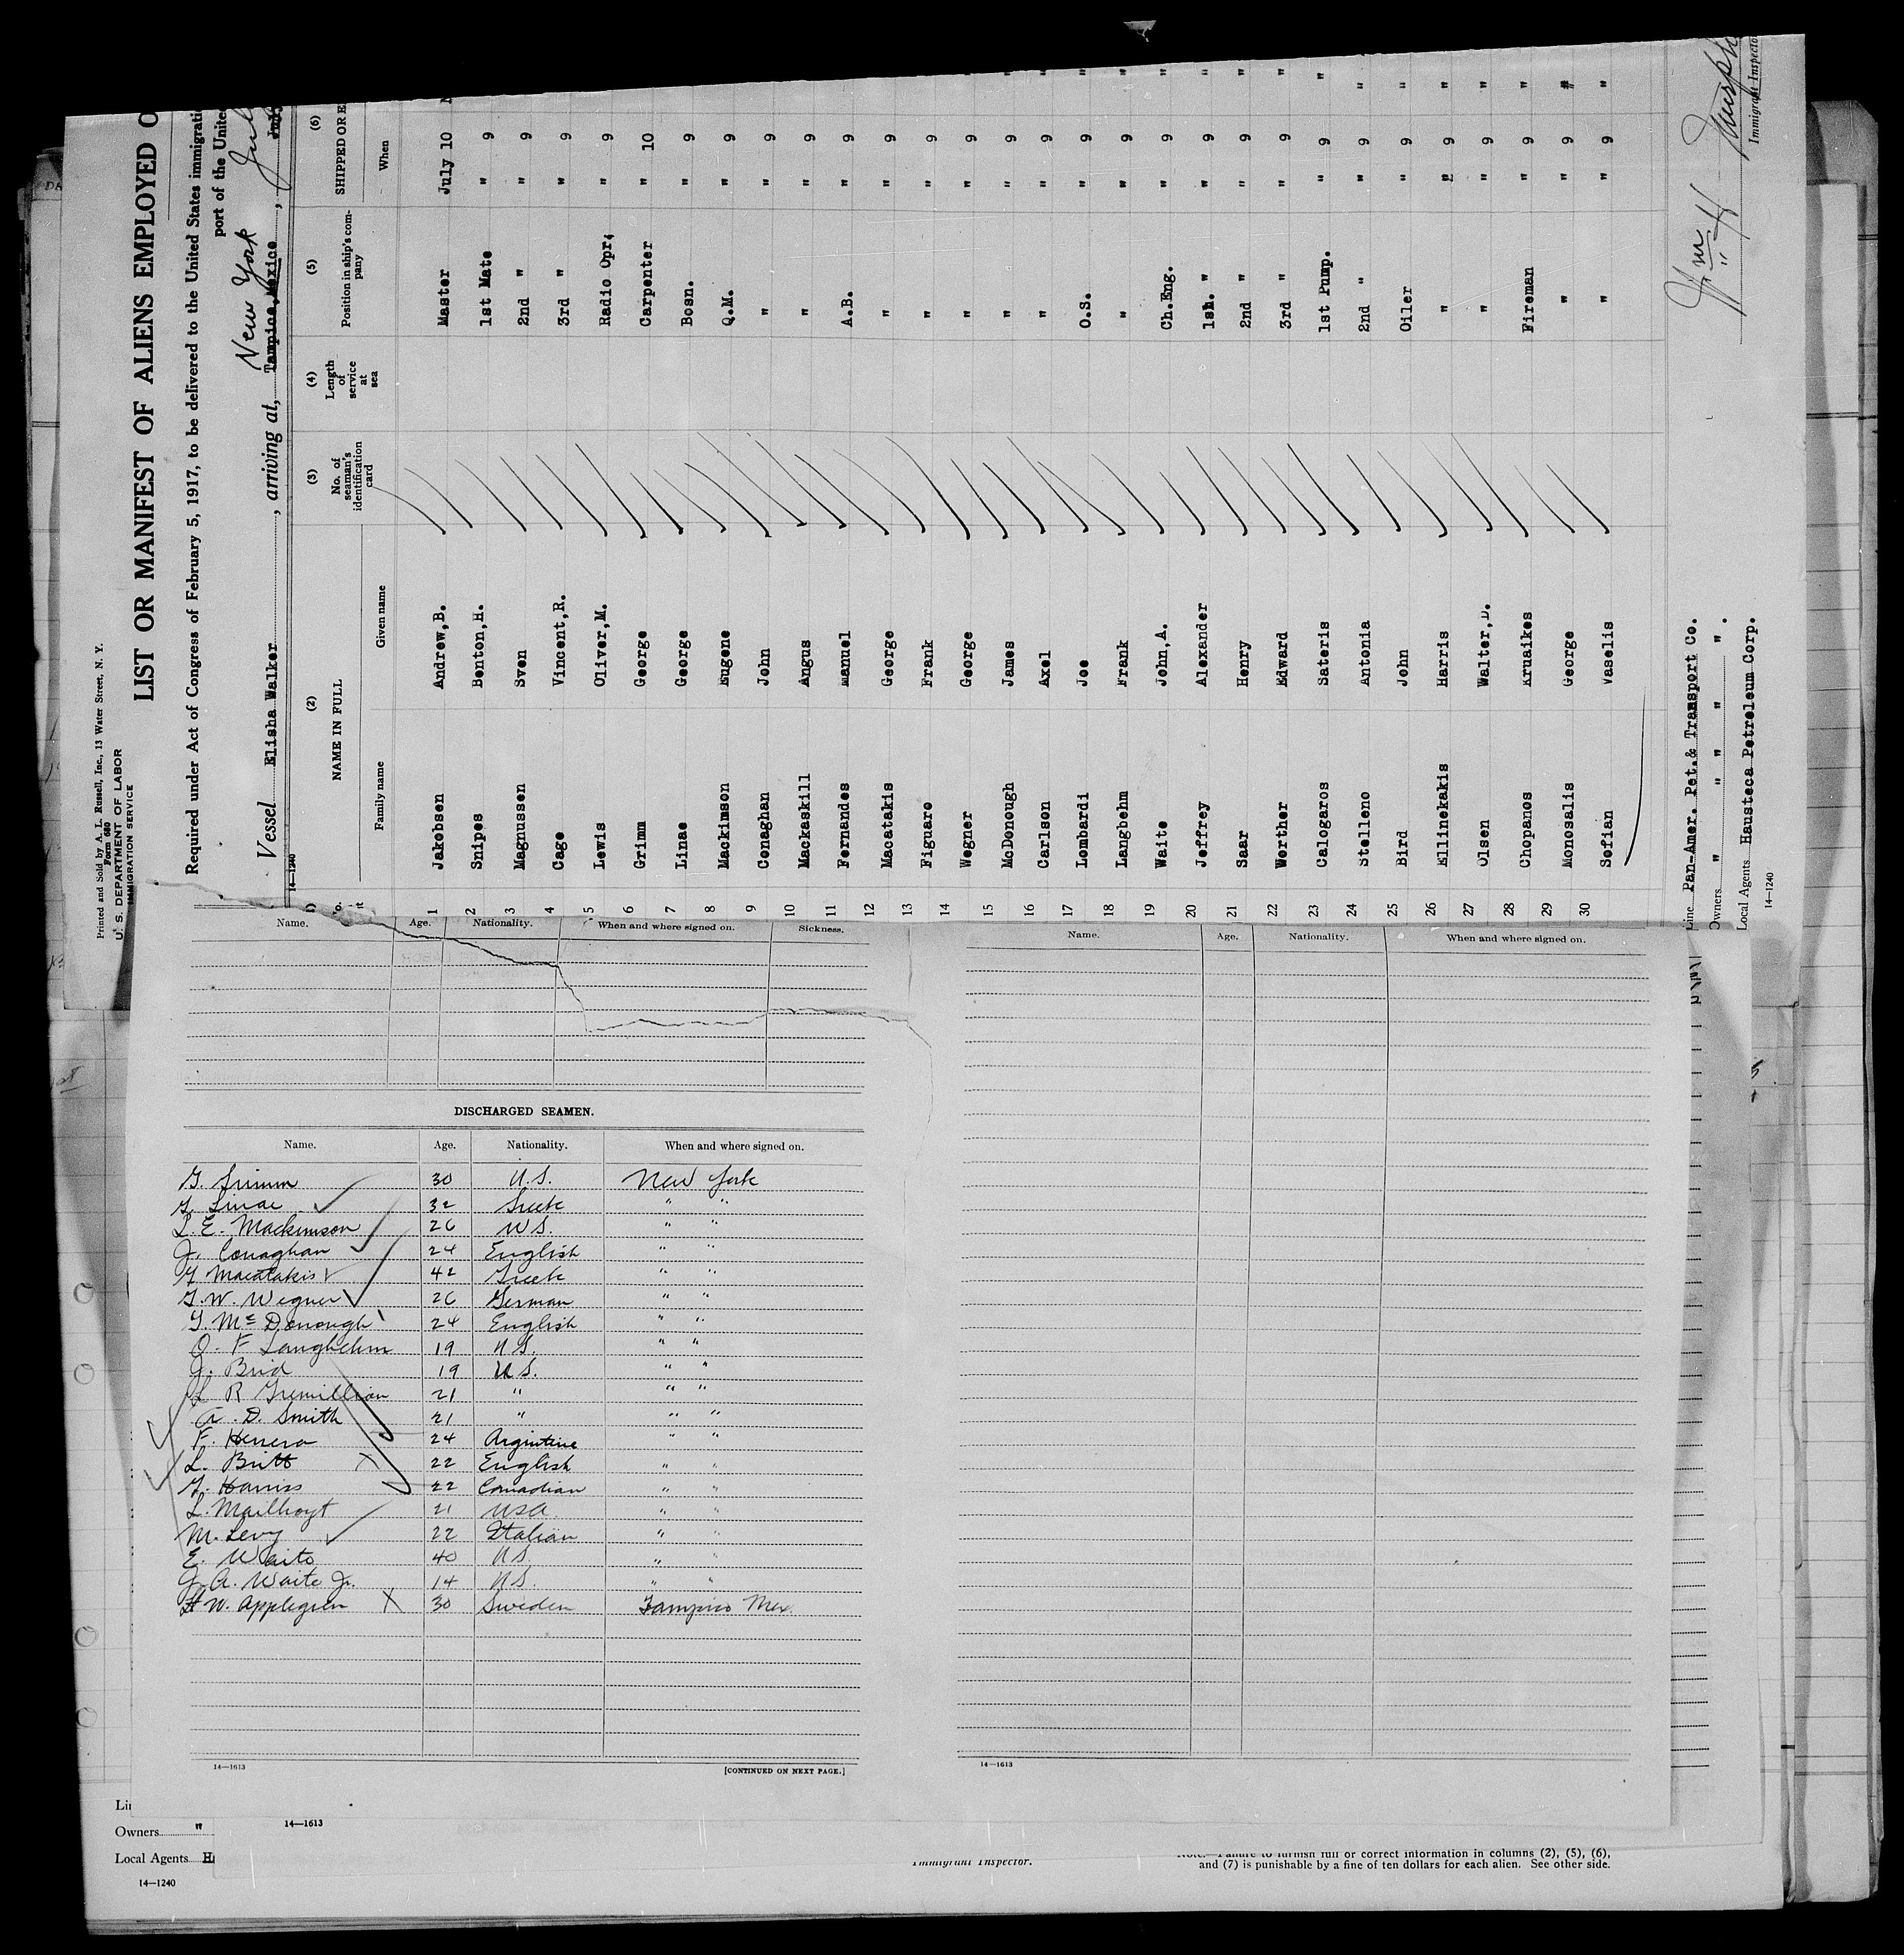 Printed and Sold by A. L. Russell, Inc., 13 Water Street, N. Y.
Form 680
U. S. DEPARTMENT OF LABOR
IMMIGRATION SERVICE
LIST OR MANIFEST OF ALIENS EMPLOYED O
Required under Act of Congress of February 5, 1917, to be delivered to the United States immigrati
port of the United
Vessel Elisha Walker, arriving at, Tampico, Mexico New York, July
14—1240
(2) (3) (4) (5) (6)
NAME IN FULL No. of seaman's identification card Length of service at sea Position in ship's company SHIPPED OR E
Family name Given name When
1 Jakobsen Andrew,B. Master July 10
2 Snipes Benton,H. 1st Mate " 9
3 Magnussen Sven 2nd " " 9
4 Cage Vincent,R. 3rd " " 9
5 Lewis Oliver,M. Radio Opr. " 9
6 Grimm George Carpenter " 10
7 Linae George Bosn. " 9
8 Mackimson Eugene Q.M. " 9
9 Conaghan John " " 9
10 Mackaskill Angus " " 9
11 Fernandes Manuel A.B. " 9
12 Macatakis George " " 9
13 Figuaro Frank " " 9
14 Wegner George " " 9
15 McDonough James " " 9
16 Carlson Axel " " 9
17 Lombardi Joe O.S. " 9
18 Langbehm Frank " " 9
19 Waite John,A. Ch.Eng. " 9
20 Jeffrey Alexander 1st. " " 9
21 Saar Henry 2nd " " 9
22 Werther Edward 3rd " " 9
23 Calogaros Sateris 1st Pump. " 9
24 Stelleno Antonia 2nd " " 9
25 Bird John Oiler " 9
26 Ellinekakis Harris " " 9
27 Olsen Walter,D. " " 9
28 Chopanos Kruaikes Fireman " 9
29 Monosalis George " " 9
30 Sofian Vaselis " " 9
Line Pan-Amer. Pet.& Transport Co.
Owners " " " " " .
Local Agents Hausteca Petroleum Corp.
14—1240
Wm H Murph
Immigrant Inspector
Name. Age. Nationality. When and where signed on. Sickness.
Name. Age. Nationality. When and where signed on.
DISCHARGED SEAMEN.
Name. Age. Nationality. When and where signed on.
G. Grimm 30 U.S. New York
G. Linae 32 Greek " "
L. E. Mackimson 26 U.S. " "
J. Conaghan 24 English " "
G Macatakis 42 Greek " "
G. W. Wegner 26 German " "
J. McDonough 24 English " "
O. F Langbehm 19 U.S. " "
J. Brid 19 U.S. " "
L R Gremillian 21 " " "
A. D. Smith 21 " " "
F. Herrera 24 Argintine " "
L. Britt 22 English " "
G. Harriss 22 Canadian " "
L. Mailhoyt 21 USA. " "
M. Levy 22 Italian " "
E. Waito 40 U.S. " "
J. A. Waite Jr. 14 U.S. " "
H W. Applegren 30 Sweden Tampico Mex.
14—1613
[CONTINUED ON NEXT PAGE.]
14—1613
Li
Owners "
14—1613
Local Agents H
14—1240
Immigrant Inspector.
Note.—Failure to furnish full or correct information in columns (2), (5), (6),
and (7) is punishable by a fine of ten dollars for each alien. See other side.